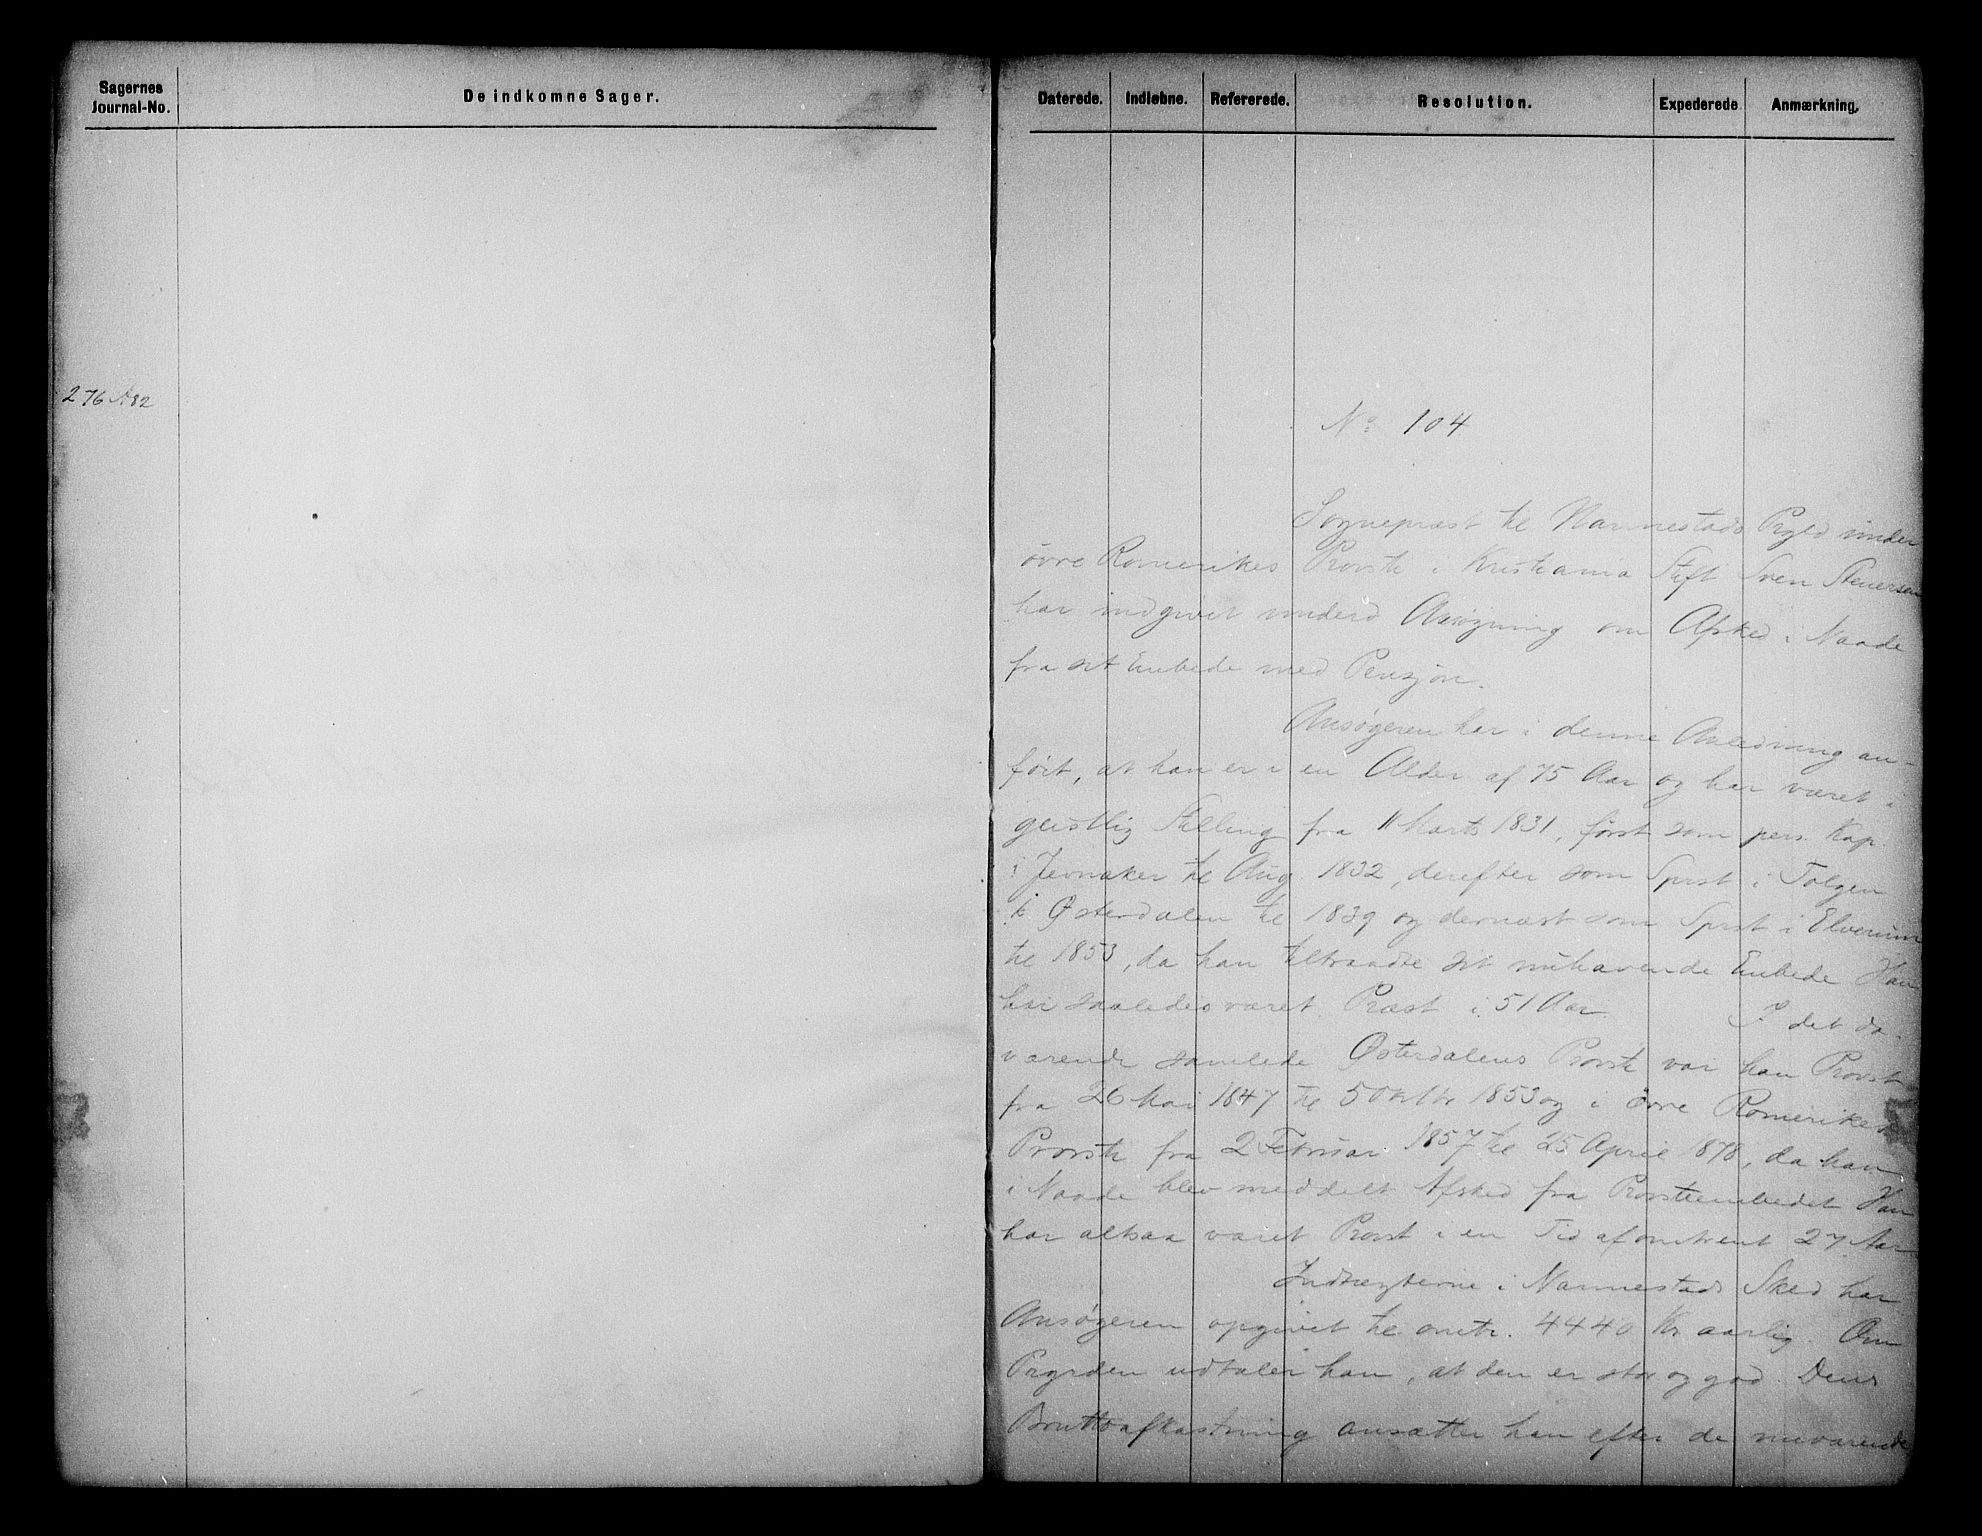 Sagernes
Journal-No.
De indkomne Sager.
276 A 82
Daterede. Indløbne. Refererede. Resolution. Expederede Anmærkning.
No 104
Sognepræst til Nannestads Prgld under
øvre Romerikes Provsti i Kristiania Stift Sven Stenersen
har indgivet underd Ansøgning om Afsked i Naade
fra sit Embede med Pensjon.
Ansøgeren har i denne Anledning an-
ført, at han er i en Alder af 75 Aar og har været i
geistlig Stilling fra 11 Marts 1831, først som pers. Kap.
i Jevnaker til Aug. 1832, derefter som Sprst i Tolgen
i Østerdalen til 1839 og dernæst som Sprst i Elverum
til 1853, da han tiltraadte sit nuhavende Embede Han
har saaledes været Præst i 51 Aar. I det da-
værende samlede Østerdalens Provsti var han Provst
fra 26 Mai 1847 til 5 Oktbr 1853 og i øvre Romerikes
Provsti fra 2 Februar 1857 til 25 April 1878, da han
i Naade blev meddelt Afsked fra Provsteembedet Han
har altsaa været Provst i en Tid af omtrent 27 Aar
Indtægterne i Nannestads Sked har
Ansøgeren opgivet til omtr. 4440 Kr aarlig. Om
Prgrden udtaler han, at den er stor og god. Dens
Bruttoafkastning ansætter han efter de nuværende